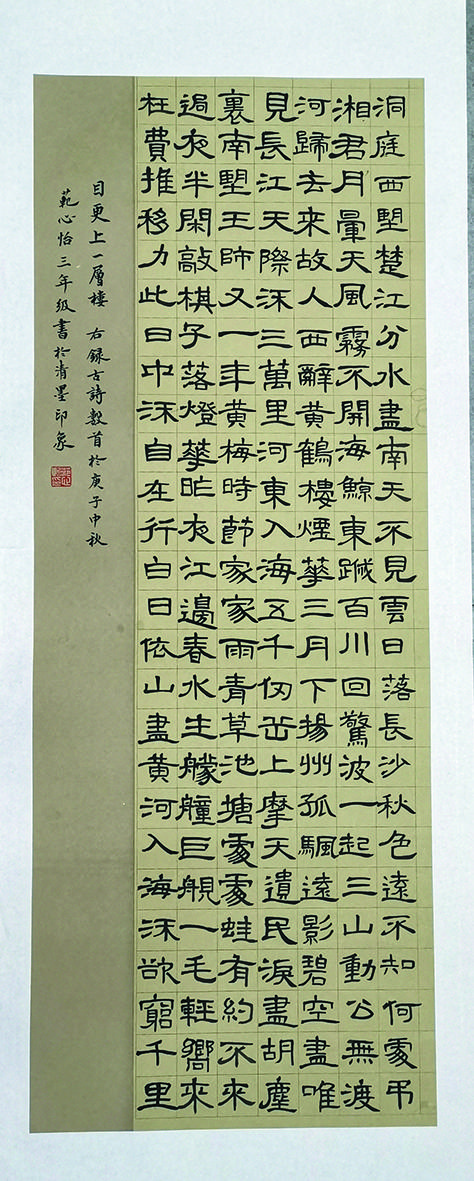 洞庭西望楚江分水盡南天不見雲日落長沙秋色遠不知何處弔
湘君月暈天風霧不開海鯨東蹴百川回驚波一起三山動公無渡
河歸去來故人西辭黃鶴樓煙華三月下揚州孤颿遠影碧空盡唯
見長江天際流三萬里河東入海五千仞岳上摩天遺民淚盡胡塵
裏南望王師又一年黃梅時節家家雨青草池塘處處蛙有約不來
過夜半閑敲棋子落燈華昨夜江邊春水生艨艟巨艦一毛輕嚮來
枉費推移力此日中流自在行白日依山盡黃河入海流欲窮千里
目更上一層樓 右録古詩數首於庚子中秋
範心怡三年級書於清墨印象